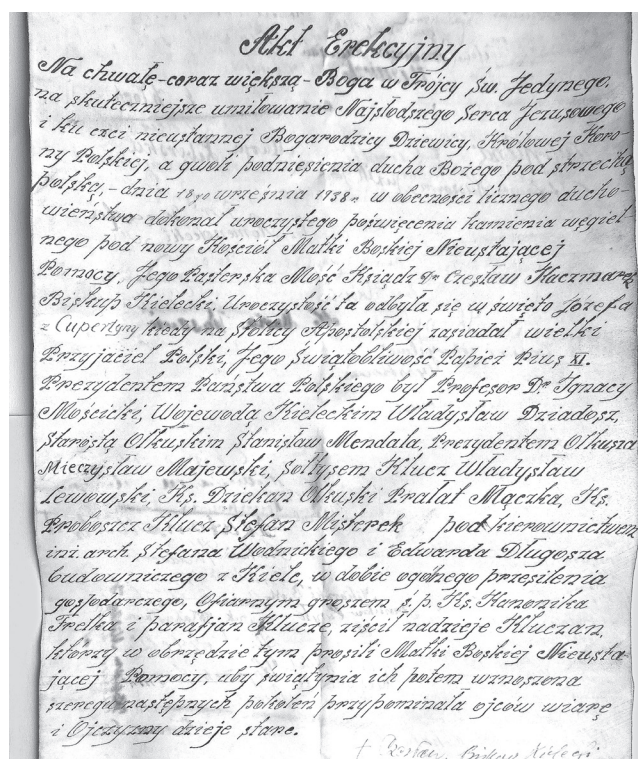 Akt Erekcyjny
Na chwałę-coraz większą-Boga w Trójcy Św. Jedynego,
na skuteczniejsze umiłowanie Najsłodszego Serca Jezusowego
i ku czci nieustannej Bogarodzicy Dziewicy, Królowej Koro-
ny Polskiej, a gwoli podniesienia ducha Bożego pod strzechę
polską,- dnia 18go września 1938r. w obecności licznego ducho-
wieństwa dokonał uroczystego poświęcenia kamienia węgiel-
nego pod nowy Kościół Matki Boskiej Nieustającej
Pomocy, Jego Pasterska Mość Ksiądz Dr Czesław Kaczmarek
Biskup Kielecki. Uroczystość ta odbyła się w święto Józefa
z Cupertyny kiedy na Stolicy Apostolskiej zasiadał wielki
Przyjaciel Polski, Jego Świątobliwość Papież Pius XI.
Prezydentem Państwa Polskiego był Profesor Dr Ignacy
Mościcki, Wojewodą Kieleckim Władysław Dziadosz,
Starostą Olkuskim Stanisław Mendala, Prezydentem Olkusza
Mieczysław Majewski, Sołtysem Klucz Władysław
Lewowski, Ks. Dziekan Olkuski Prałat Mączka, Ks.
Proboszcz Klucz Stefan Misterek pod kierownictwem
inż. arch. Stefana Wodnickiego i Edwarda Długosza
budowniczego z Kielc, w dobie ogólnego przesilenia
gospodarczego, Ofiarnym groszem ś.p. Ks. Kanonika
Frelka i parafjan Klucze, ziścił nadzieje Kluczan,
którzy w obrzędzie tym prosili Matki Boskiej Nieusta-
jącej Pomocy, aby świątynia ich potem wznoszona
szeregu następnych pokoleń przypominała ojców wiarę
i Ojczyzny dzieje stare.
† Czesław, Biskup Kielecki